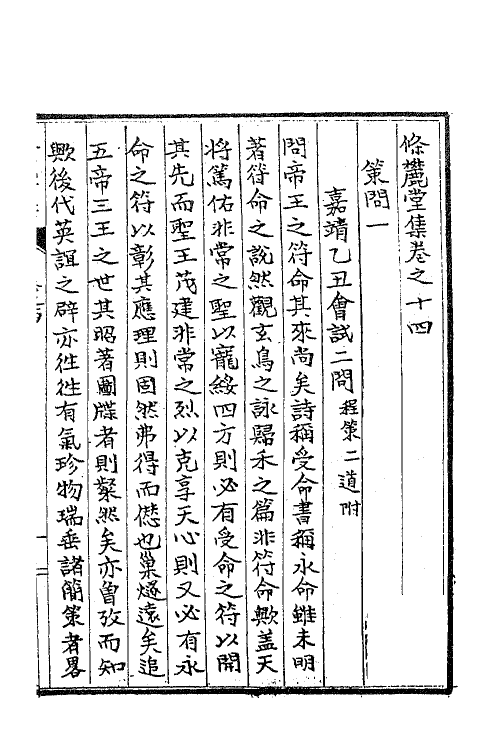 條麓堂集卷之十四
策問一
嘉靖乙丑會試二問程策二道附
問帝王之符命其來尚矣詩稱受命書稱永命雖未明
著符命之說然觀玄鳥之詠歸禾之篇非符命歟蓋天
將篤佑非常之聖以寵綏四方則必有受命之符以開
其先而聖王茂建非常之烈以克享天心則又必有永
命之符以彰其應理則固然弗得而僁也巢燧遠矣追
五帝三王之世其昭著圖牒者則粲然矣亦曾攷而知
歟後代英誼之辟亦徃徃有氣珍物瑞垂諸簡策者畧